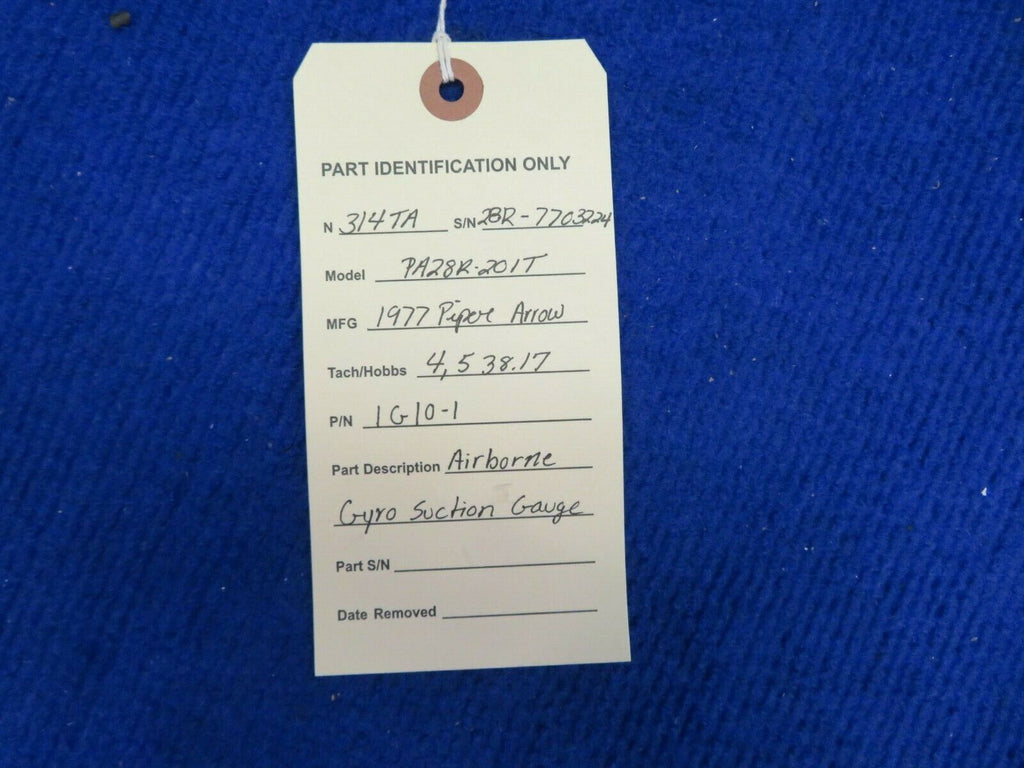 PART IDENTIFICATION ONLY
N 314TA S/N 28R-7703224
Model PA28R-201T
MFG 1977 Piper Arrow
Tach/Hobbs 4,538.17
P/N 1G10-1
Part Description Airborne
Gyro Suction Gauge
Part S/N
Date Removed